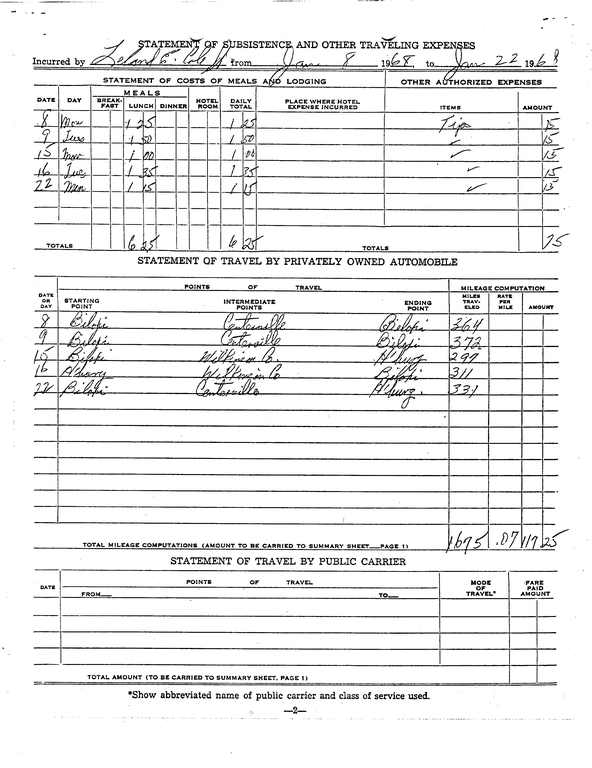 STATEMENT OF SUBSISTENCE AND OTHER TRAVELING EXPENSES
Incurred by Leland E. Cole Jr from Jan 8 1968, to Jan 22 1968
STATEMENT OF COSTS OF MEALS AND LODGING OTHER AUTHORIZED EXPENSES
DATE DAY MEALS BREAK-FAST LUNCH DINNER HOTEL ROOM DAILY TOTAL PLACE WHERE HOTEL EXPENSE INCURRED ITEMS AMOUNT
8 Mon 1 25 1 25 Tips 15
9 Tues 1 50 1 50 ✓ 15
15 Mon 1 00 1 00 ✓ 15
16 Tues 1 35 1 35 ✓ 15
22 Mon 1 15 1 15 ✓ 15
TOTALS 6 25 6 25 TOTALS 75
STATEMENT OF TRAVEL BY PRIVATELY OWNED AUTOMOBILE
POINTS OF TRAVEL MILEAGE COMPUTATION
DATE OR DAY STARTING POINT INTERMEDIATE POINTS ENDING POINT MILES TRAV-ELED RATE PER MILE AMOUNT
8 Biloxi Centerville Biloxi 364
9 Biloxi Centerville Biloxi 372
15 Biloxi Wilkinson Co. H'burg 297
16 H'burg Wilkinson Co Biloxi 311
22 Biloxi Centerville H'burg. 331
TOTAL MILEAGE COMPUTATIONS (AMOUNT TO BE CARRIED TO SUMMARY SHEET—PAGE 1) 1675 .07 117 25
STATEMENT OF TRAVEL BY PUBLIC CARRIER
DATE POINTS OF TRAVEL MODE OF TRAVEL* FARE PAID AMOUNT
FROM— TO—
TOTAL AMOUNT (TO BE CARRIED TO SUMMARY SHEET, PAGE 1)
*Show abbreviated name of public carrier and class of service used.
—2—